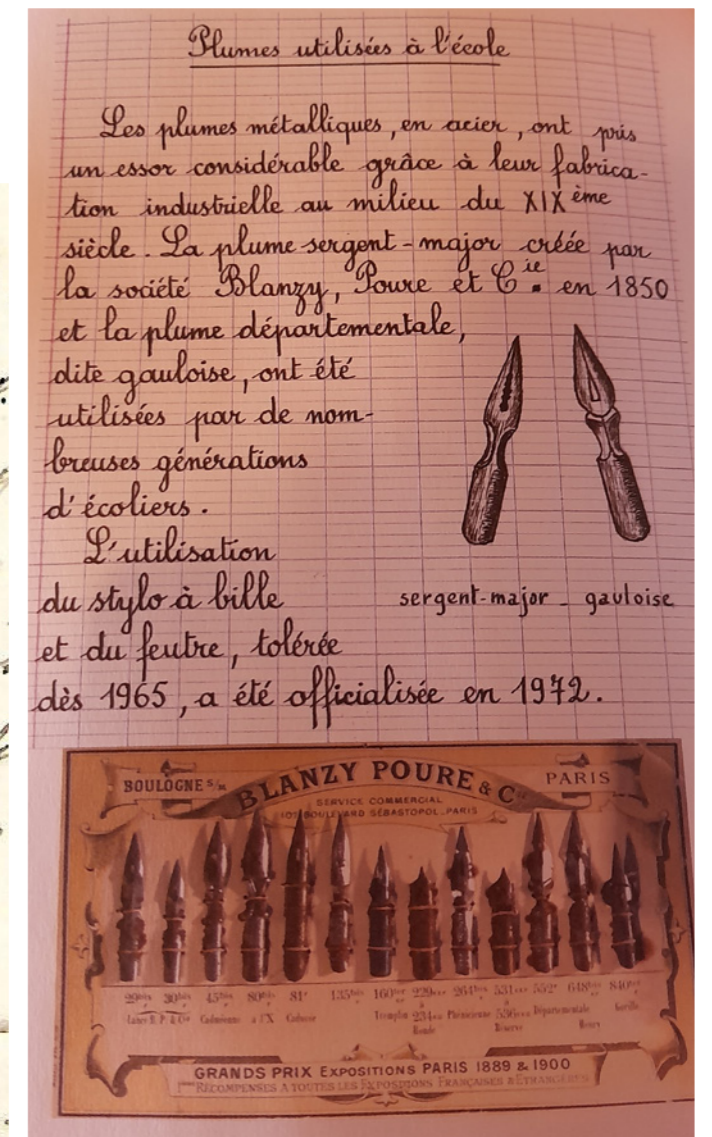 Plumes utilisées à l'école
Les plumes métalliques, en acier, ont pris
un essor considérable grâce à leur fabrica-
tion industrielle au milieu du XIXème
siècle. La plume sergent-major créée par
la société Blanzy, Poure et Cie. en 1850
et la plume départementale,
dite gauloise, ont été
utilisées par de nom-
breuses générations
d'écoliers.
L'utilisation
du stylo à bille
et du feutre, tolérée
dès 1965, a été officialisée en 1972.
sergent-major - gauloise
BOULOGNE S/M BLANZY POURE & Cie PARIS
SERVICE COMMERCIAL
107 BOULEVARD SÉBASTOPOL-PARIS
GRANDS PRIX EXPOSITIONS PARIS 1889 & 1900
RÉCOMPENSES A TOUTES LES EXPOSITIONS FRANÇAISES & ÉTRANGÈRES